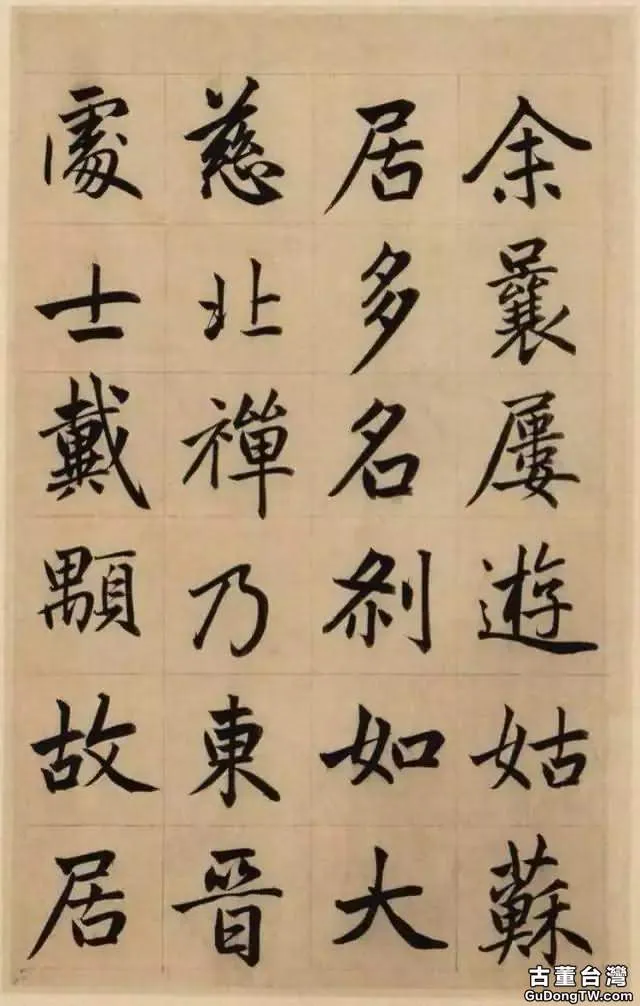 余曩屢遊姑蘇
居多名刹如大
慈北禪乃東晉
處士戴顒故居
古董台灣
GuDongTW.com